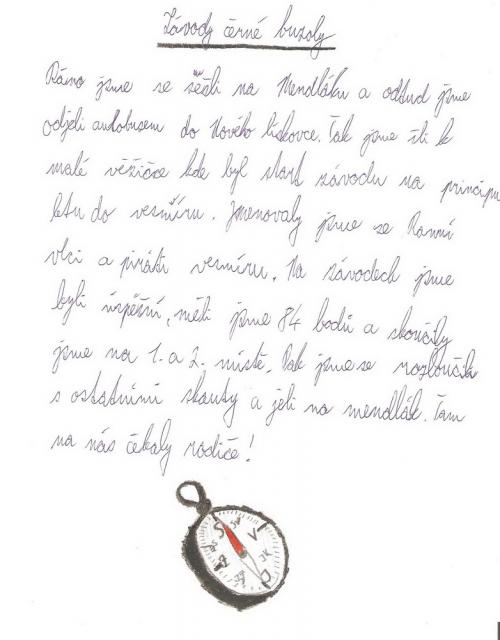 Závody černé buzoly
Ráno jsme se sešli na Mendláku a odtud jsme
odjeli autobusem do Nového lískovce. Tak jsme šli k
malé věžičce kde byl start závodu na principu
letu do vesmíru. Jmenovaly jsme se Ranní
vlci a piráti vesmíru. Na závodech jsme
byli úspěšní, měli jsme 84 bodů a skončily
jsme na 1. a 2. místě. Pak jsme se rozloučili
s ostatními skauty a jeli na mendlák. Tam
na nás čekaly rodiče!
S
SV
V
JV